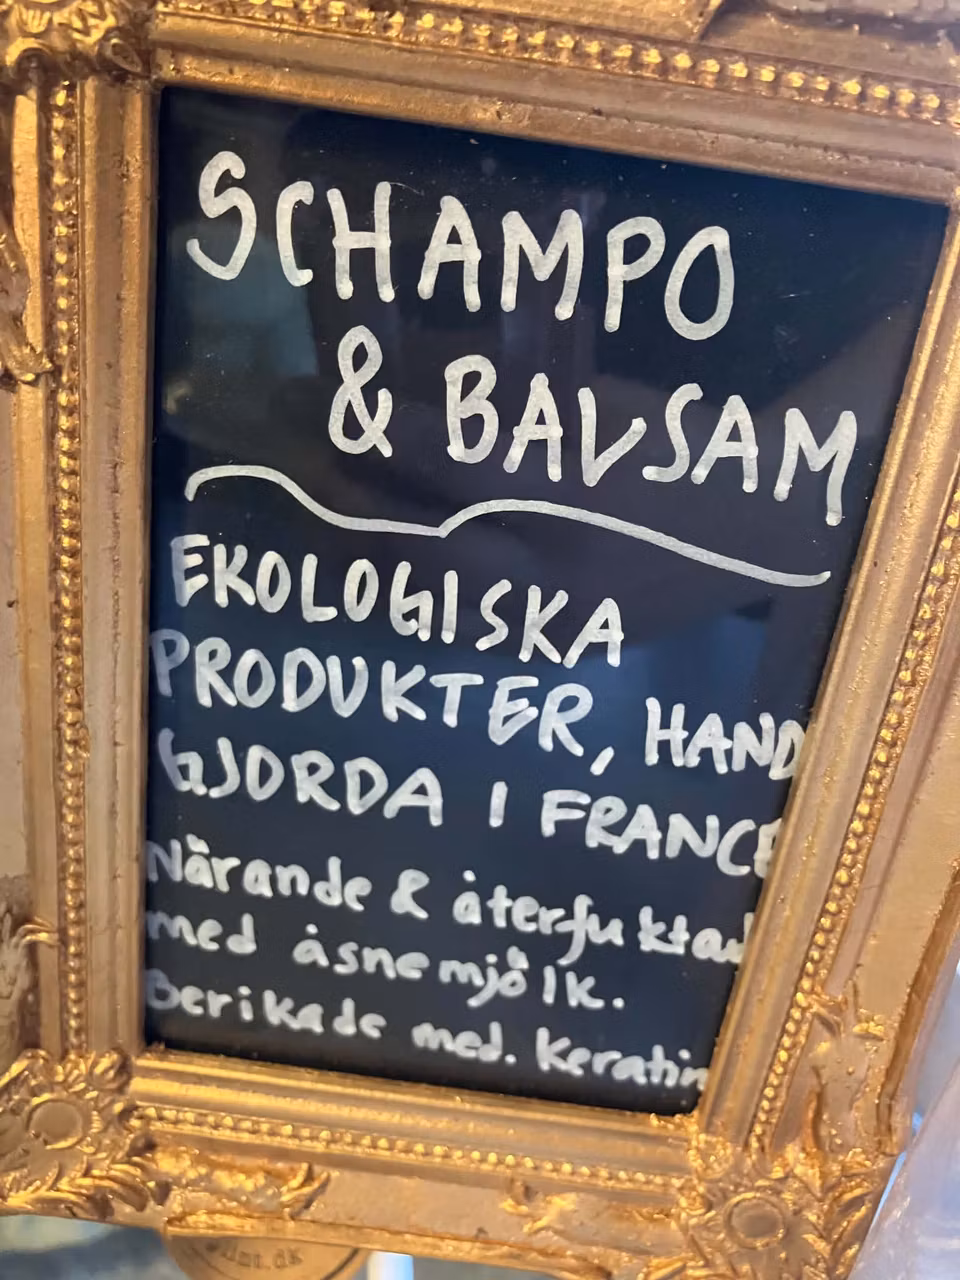 SCHAMPO
& BALSAM
EKOLOGISKA
PRODUKTER, HAND
GJORDA I FRANCE
Närande & återfuktad
med åsnemjölk.
Berikade med. keratin